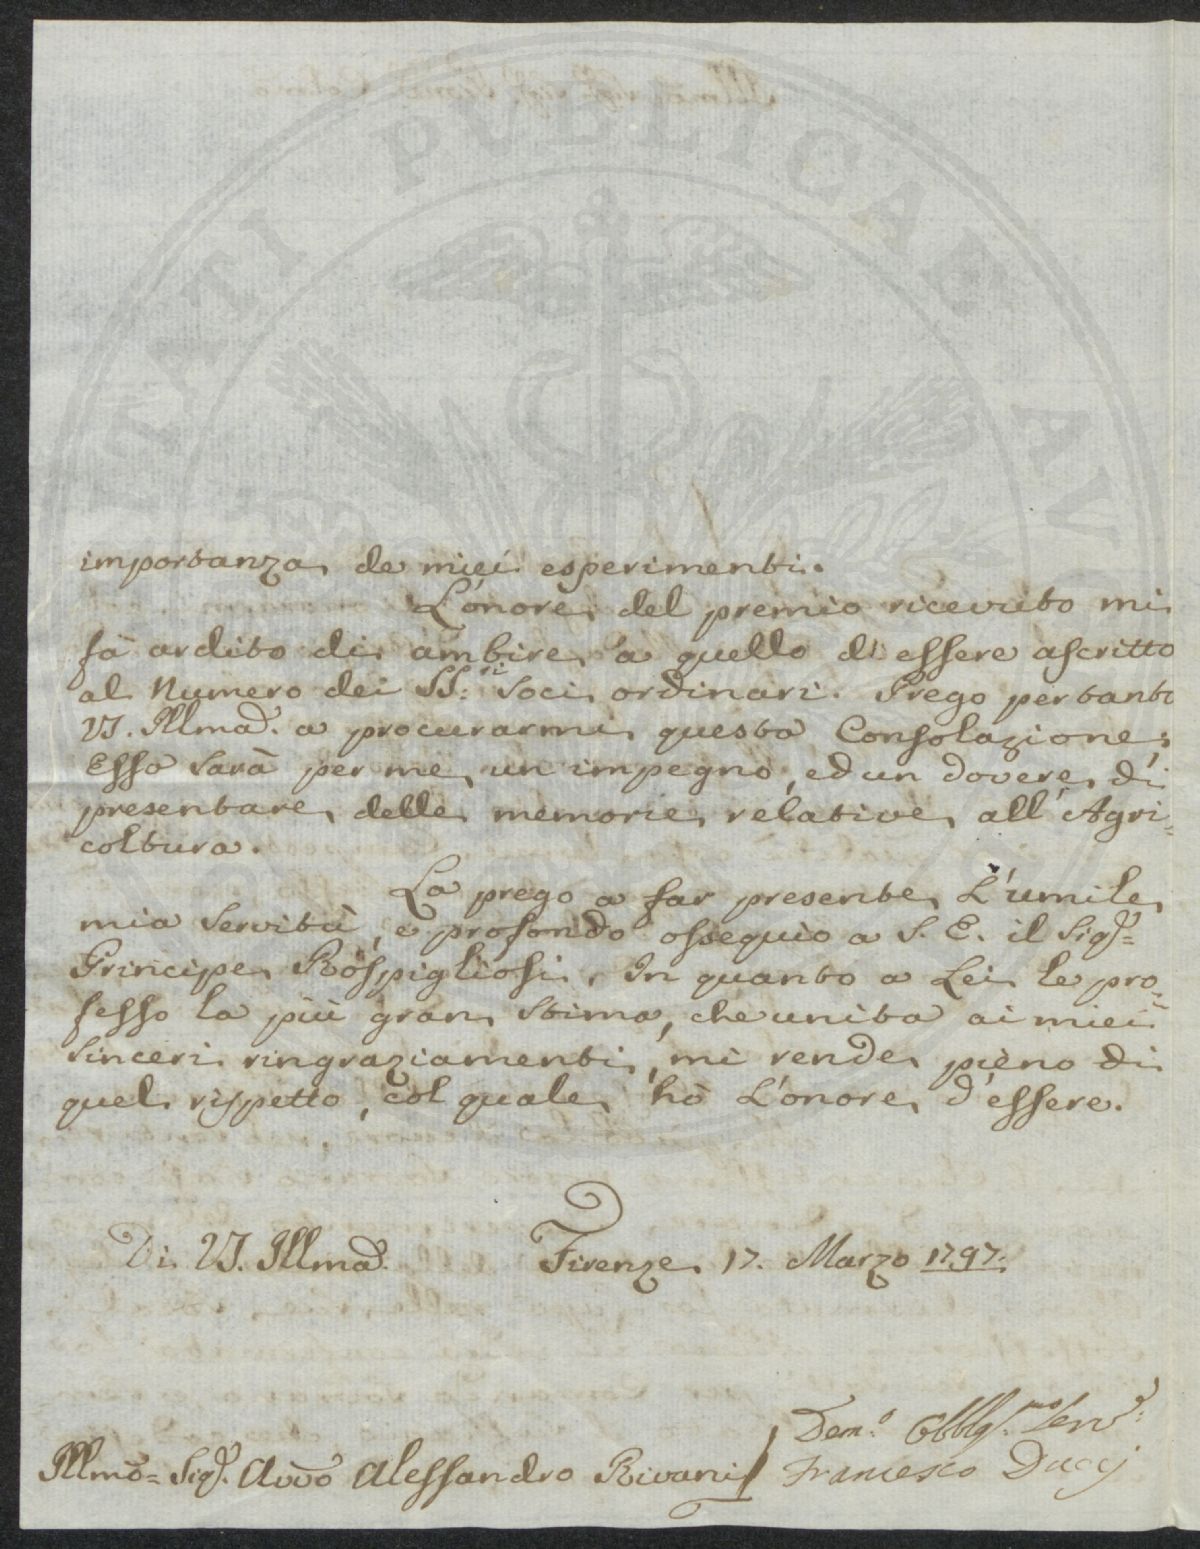 UTILITATI PUBLICAE AVC
importanza de miei esperimenti.
L'onore del premio ricevuto mi
fà ardito di ambire a quello di essere ascritto
al Numero dei SS:ri Soci ordinari. Prego pertanto
VS. Illma. a procurarmi questa Consolazione;
Esso sarà per me un impegno, ed un dovere di
presentare delle memorie relative all'Agri=
coltura.
La prego a far presente L'umile
mia servitù, e profondo ossequio a S. E. il Sigr=
Principe Rospigliosi. In quanto a Lei le pro=
fesso la più gran stima, che unita ai miei
sinceri ringraziamenti, mi rende pieno di
quel rispetto, col quale hò L'onore d'essere.
Di VS. Illma.
Firenze 17. Marzo 1797.
Dem:o Obblg.mo Serv:e
Illmo= Sigr. Avvo Alessandro Rivani
Francesco Ducci